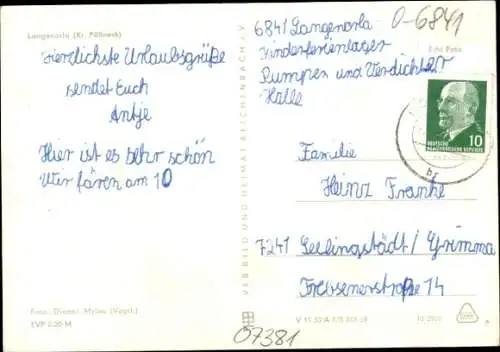 Langenorla (Kr. Pößneck)
Herzlichste Urlaubsgrüße
sendet Euch
Antje
Hier ist es sehr schön
Wir fären am 10
Foto: Diener, Mylau (Vogtl.)
EVP 0.20 M
VEB BILD UND HEIMAT REICHENBACH i. V.
6841 Langenorla
Kinderferienlager
Pumpen und Verdichter
Halle
0-6841
Echt Foto
10
DEUTSCHE
DEMOKRATISCHE REPUBLIK
Familie
Heinz Franke
7241 Seelingstädt/Grimma
Trebsenerstraße 14
07381